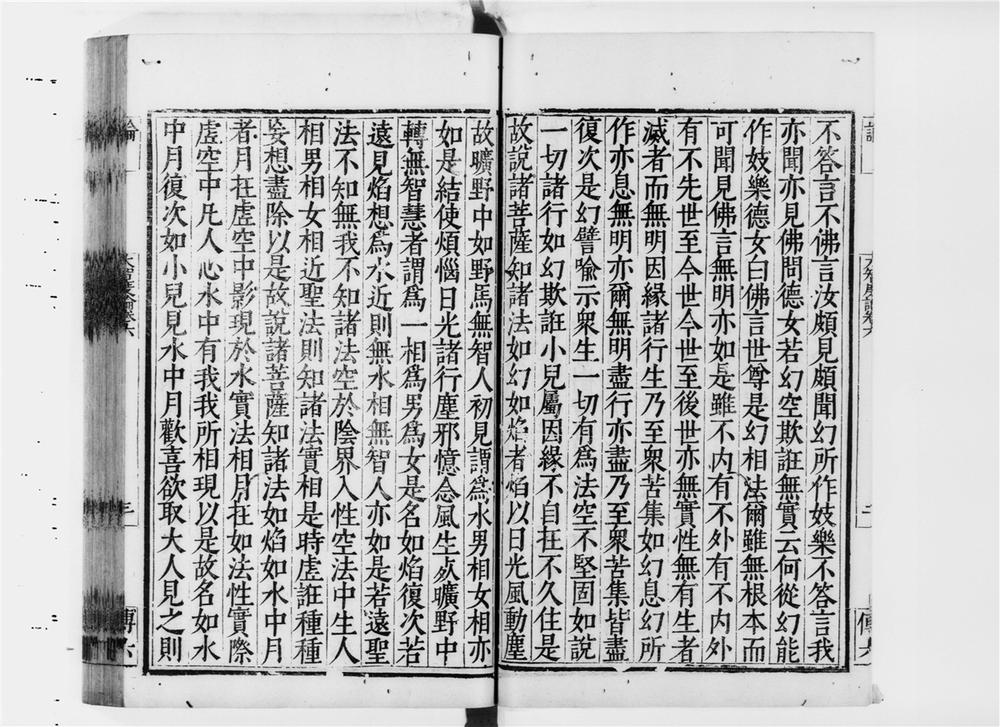 不答言不佛言汝頗見頗聞幻所作妓樂不答言我
亦聞亦見佛問德女若幻空欺誑無實云何從幻能
作妓樂德女曰佛言世尊是幻相法爾雖無根本而
可聞見佛言無明亦如是雖不內有不外有不內外
有不先世至今世今世至後世亦無實性無有生者
滅者而無明因緣諸行生乃至衆苦集如幻息幻所
作亦息無明亦爾無明盡行亦盡乃至衆苦集皆盡
復次是幻譬喻示衆生一切有爲法空不堅固如說
一切諸行如幻欺誑小兒屬因緣不自在不久住是
故說諸菩薩知諸法如幻如焰者焰以日光風動塵
故曠野中如野馬無智人初見謂爲水男相女相亦
如是結使煩惱日光諸行塵邪憶念風生死曠野中
轉無智慧者謂爲一相爲男爲女是名如焰復次若
遠見焰想爲水近則無水相無智人亦如是若遠聖
法不知無我不知諸法空於陰界入性空法中生人
相男相女相近聖法則知諸法實相是時虛誑種種
妄想盡除以是故說諸菩薩知諸法如焰如水中月
者月在虛空中影現於水實法相月在如法性實際
虛空中凡人心水中有我我所相現以是故名如水
中月復次如小兒見水中月歡喜欲取大人見之則
論
大智度論卷六
三
傳六